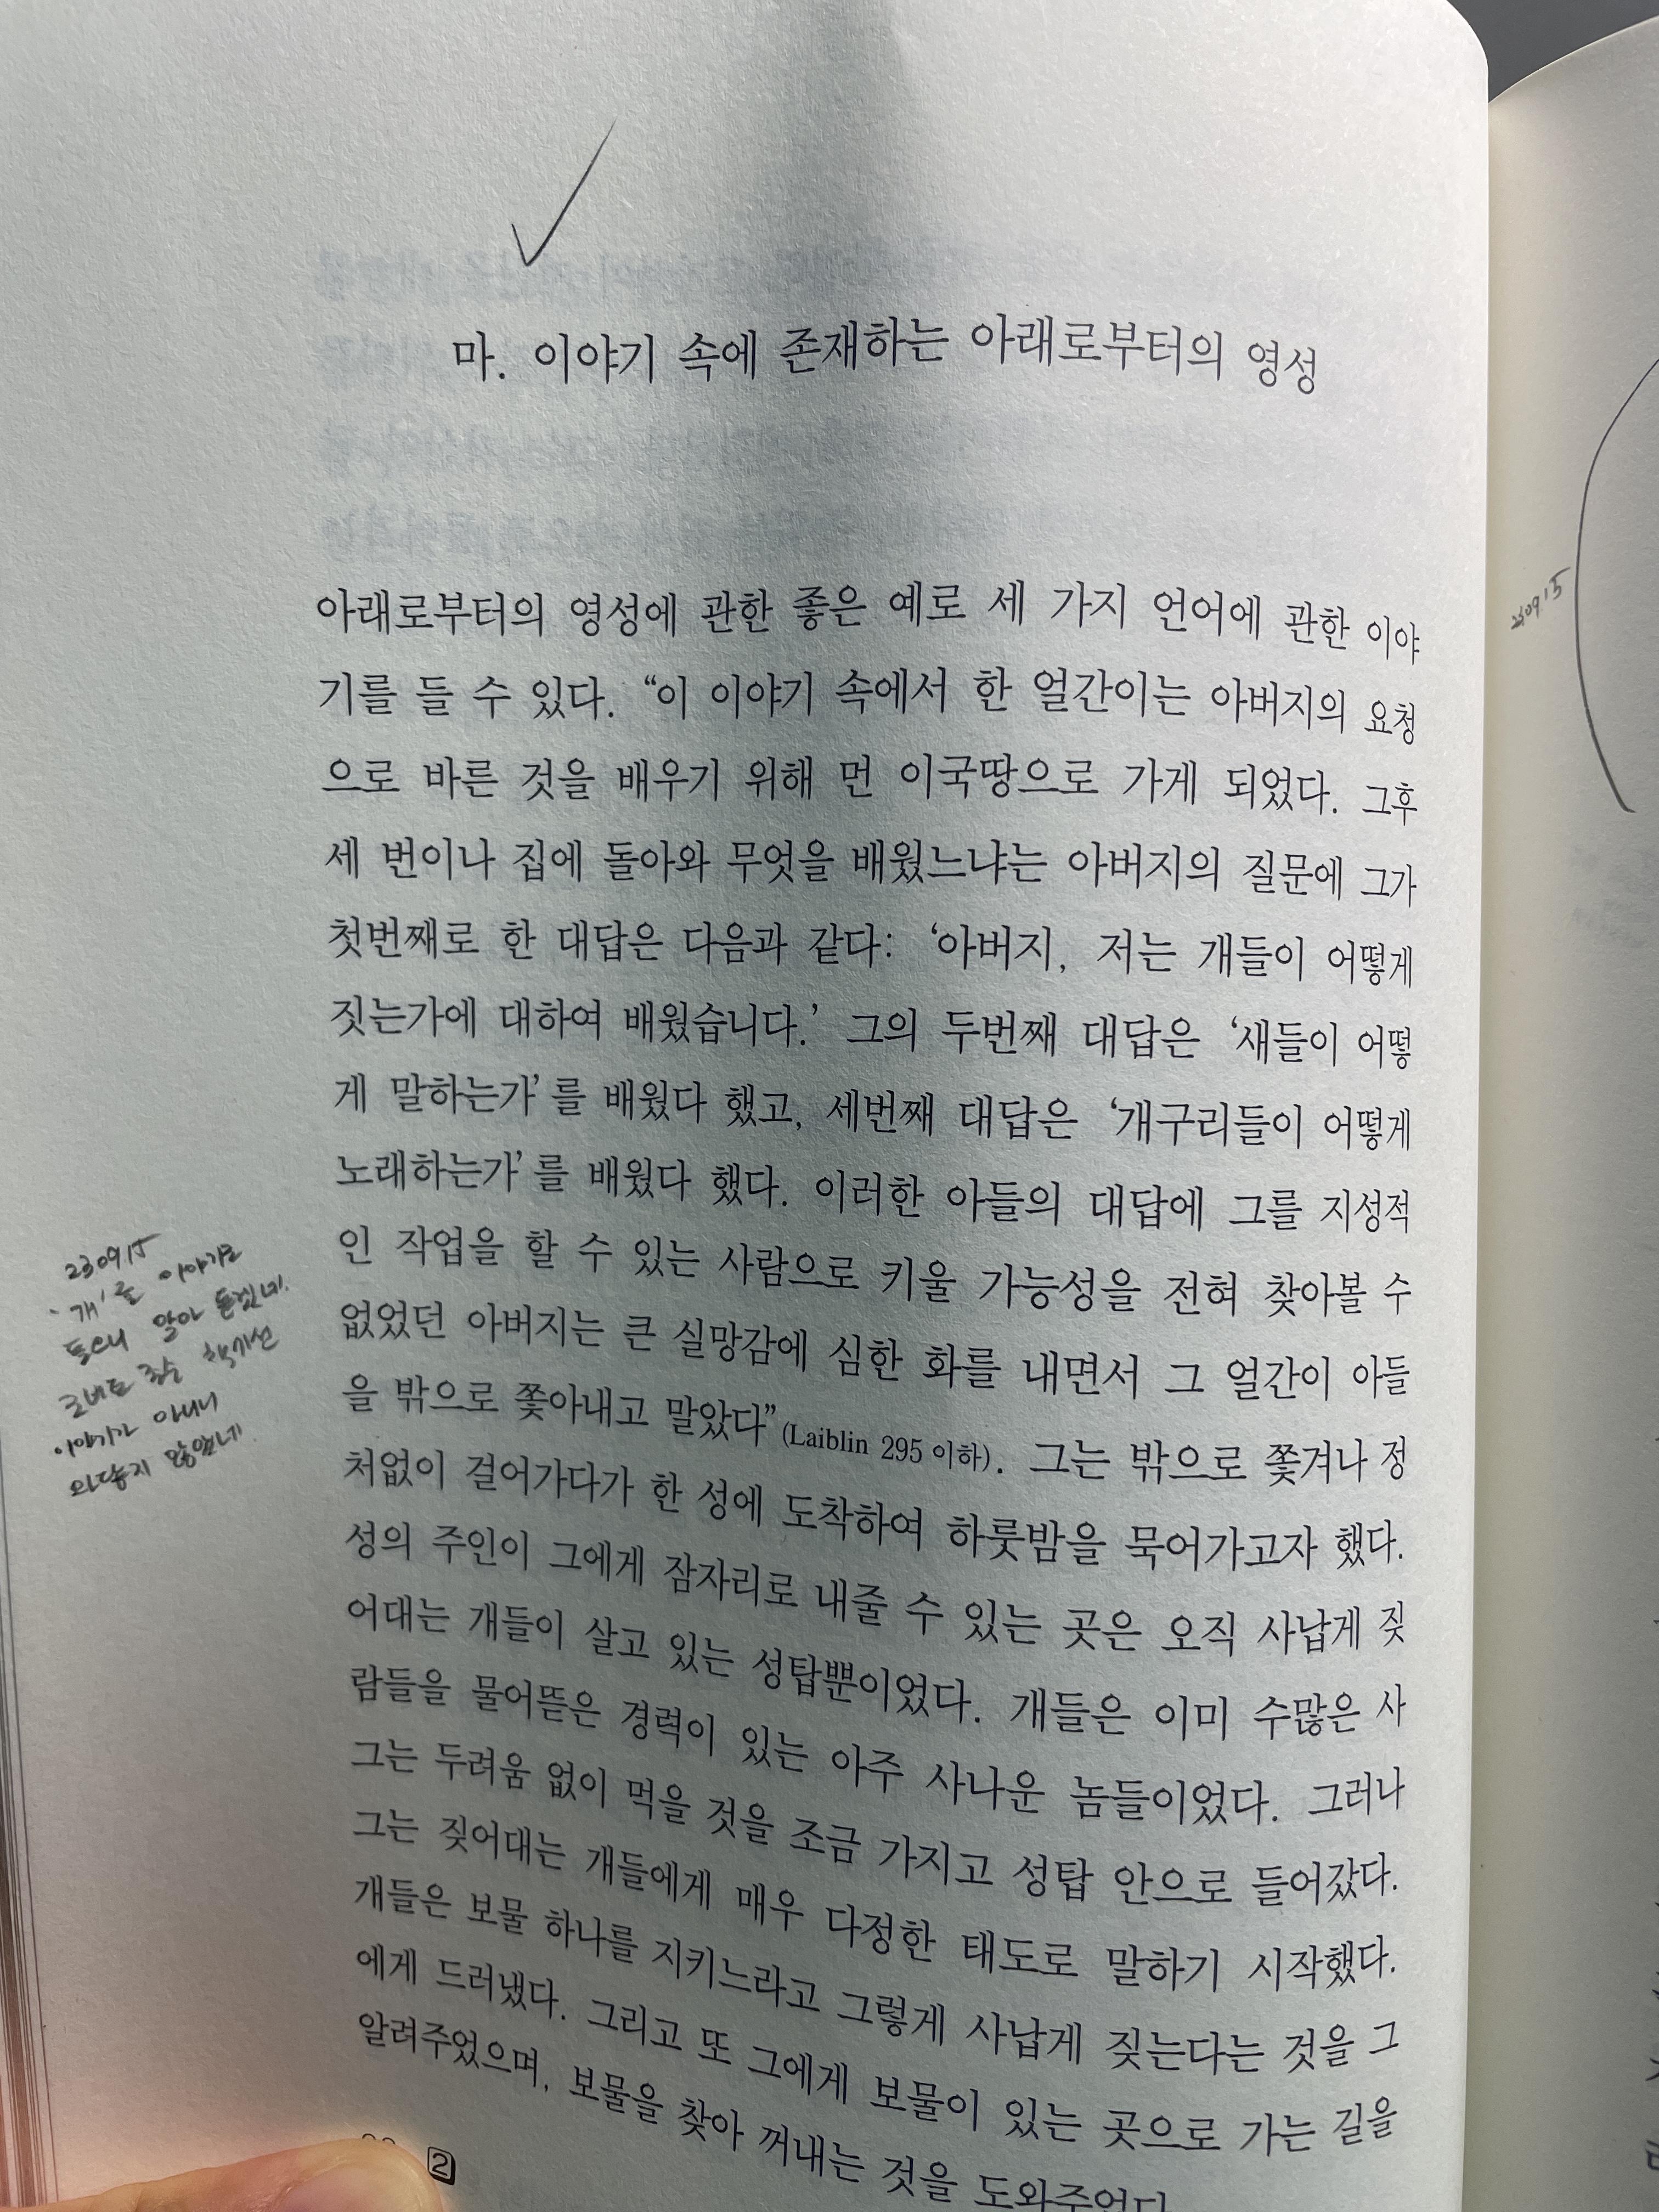 마. 이야기 속에 존재하는 아래로부터의 영성
아래로부터의 영성에 관한 좋은 예로 세 가지 언어에 관한 이야
기를 들 수 있다. “이 이야기 속에서 한 얼간이는 아버지의 요청
으로 바른 것을 배우기 위해 먼 이국땅으로 가게 되었다. 그후
세 번이나 집에 돌아와 무엇을 배웠느냐는 아버지의 질문에 그가
첫번째로 한 대답은 다음과 같다: ‘아버지, 저는 개들이 어떻게
짓는가에 대하여 배웠습니다.’ 그의 두번째 대답은 ‘새들이 어떻
게 말하는가’를 배웠다 했고, 세번째 대답은 ‘개구리들이 어떻게
노래하는가’를 배웠다 했다. 이러한 아들의 대답에 그를 지성적
인 작업을 할 수 있는 사람으로 키울 가능성을 전혀 찾아볼 수
없었던 아버지는 큰 실망감에 심한 화를 내면서 그 얼간이 아들
을 밖으로 쫓아내고 말았다”(Laiblin 295 이하). 그는 밖으로 쫓겨나 정
처없이 걸어가다가 한 성에 도착하여 하룻밤을 묵어가고자 했다.
성의 주인이 그에게 잠자리로 내줄 수 있는 곳은 오직 사납게 짖
어대는 개들이 살고 있는 성탑뿐이었다. 개들은 이미 수많은 사
람들을 물어뜯은 경력이 있는 아주 사나운 놈들이었다. 그러나
그는 두려움 없이 먹을 것을 조금 가지고 성탑 안으로 들어갔다.
그는 짖어대는 개들에게 매우 다정한 태도로 말하기 시작했다.
개들은 보물 하나를 지키느라고 그렇게 사납게 짖는다는 것을 그
에게 드러냈다. 그리고 또 그에게 보물이 있는 곳으로 가는 길을
알려주었으며, 보물을 찾아 꺼내는 것을 도와주었다
2
230915
‘개’를 이야기로
들으니 알아 듣겠네.
이야기가 아니니
와닿지 않았네.
230915